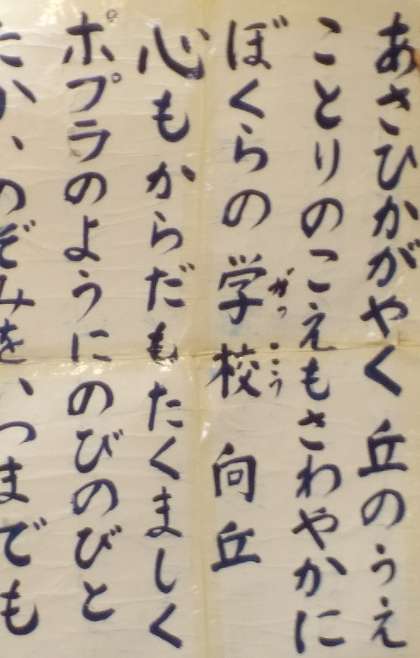 あさひかがやく丘のうえ
ことりのこえもさわやかに
ぼくらの学校 向丘
がっこう
心もからだもたくましく
ポプラのようにのびのびと
のぞみを、つまでも